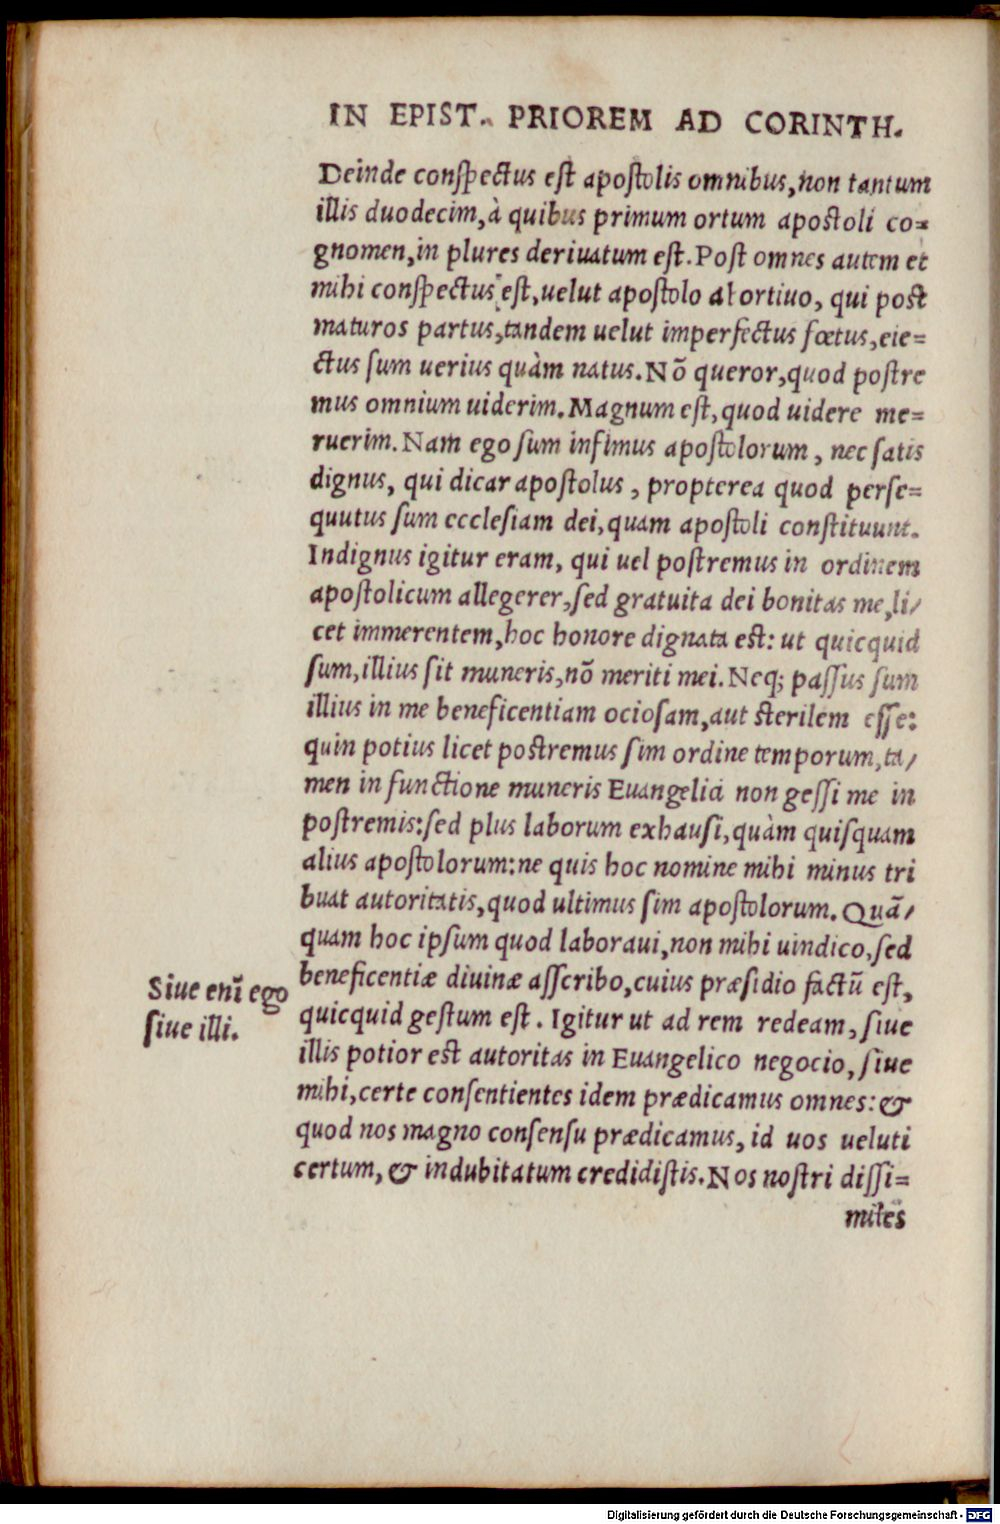 IN EPIST. PRIOREM AD CORINTH.
Deinde conspectus est apostolis omnibus, non tantum
illis duodecim, à quibus primum ortum apostoli co=
gnomen, in plures deriuatum est. Post omnes autem et
mihi conspectus est, uelut apostolo abortiuo, qui post
maturos partus, tandem uelut imperfectus fœtus, eie=
ctus sum uerius quàm natus. Nõ queror, quod postre
mus omnium uiderim. Magnum est, quod uidere me=
ruerim. Nam ego sum infimus apostolorum, nec satis
dignus, qui dicar apostolus, propterea quod perse=
quutus sum ecclesiam dei, quam apostoli constituunt.
Indignus igitur eram, qui uel postremus in ordinem
apostolicum allegerer, sed gratuita dei bonitas me, li/
cet immerentem, hoc honore dignata est: ut quicquid
sum, illius sit muneris, nõ meriti mei. Neq; passus sum
illius in me beneficentiam ociosam, aut sterilem esse:
quin potius licet postremus sim ordine temporum, ta/
men in functione muneris Euangelici non gessi me in
postremis: sed plus laborum exhausi, quàm quisquam
alius apostolorum: ne quis hoc nomine mihi minus tri
buat autoritatis, quod ultimus sim apostolorum. Quã/
quam hoc ipsum quod laboraui, non mihi uindico, sed
beneficentiæ diuinæ asscribo, cuius præsidio factũ est,
Siue enĩ ego
siue illi.
quicquid gestum est. Igitur ut ad rem redeam, siue
illis potior est autoritas in Euangelico negocio, siue
mihi, certe consentientes idem prædicamus omnes: &
quod nos magno consensu prædicamus, id uos ueluti
certum, & indubitatum credidistis. Nos nostri dissi=
miles
Digitalisierung gefördert durch die Deutsche Forschungsgemeinschaft - DFG